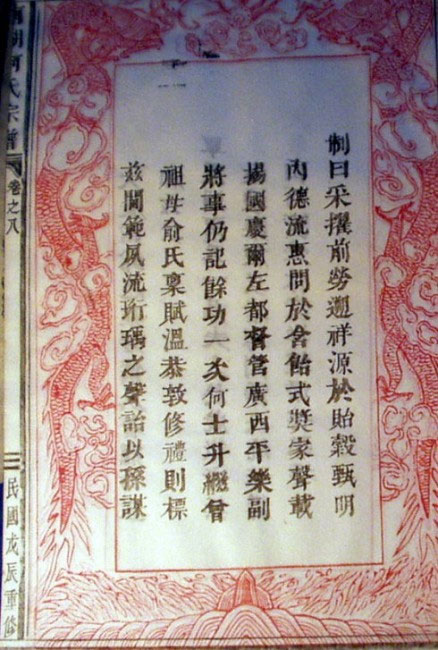 制曰采撰前勞遡祥源於貽穀甄明
內德流惠問於含飴式奬家聲載
揚國慶爾左都督管廣西平樂副
將事仍記餘功一次何士升繼曾
祖母俞氏稟賦溫恭敦修禮則標
玆閫範夙流珩瑀之聲詒以孫謀
湖何氏宗譜
卷之八
民國戊辰重修